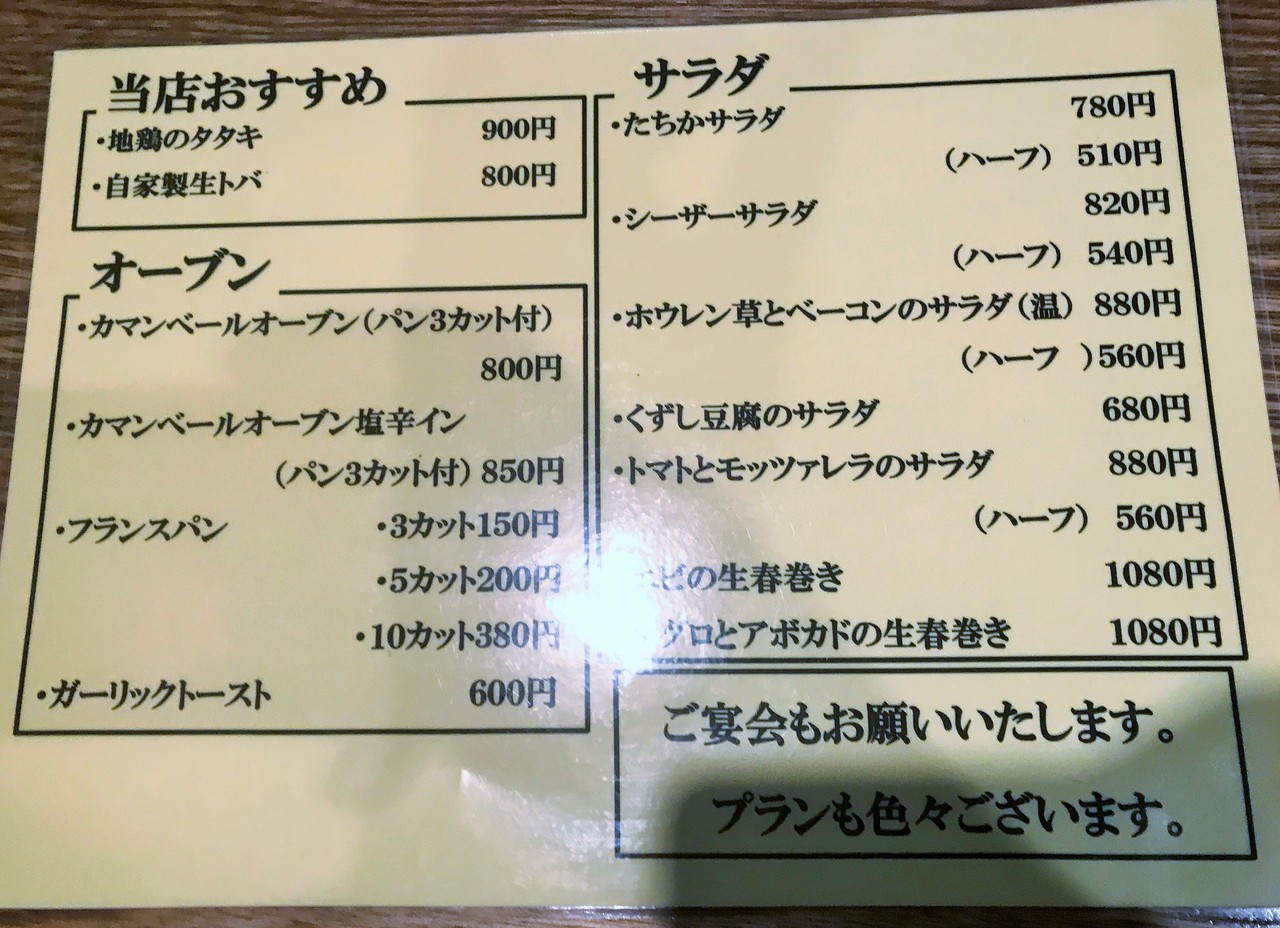 当店おすすめ
・地鶏のタタキ 900円
・自家製生トバ 800円
オーブン
・カマンベールオーブン(パン3カット付)
800円
・カマンベールオーブン塩辛イン
(パン3カット付) 850円
・フランスパン ・3カット150円
・5カット200円
・10カット380円
・ガーリックトースト 600円
サラダ
・たちかサラダ 780円
(ハーフ) 510円
・シーザーサラダ 820円
(ハーフ) 540円
・ホウレン草とベーコンのサラダ(温) 880円
(ハーフ )560円
・くずし豆腐のサラダ 680円
・トマトとモッツァレラのサラダ 880円
(ハーフ) 560円
エビの生春巻き 1080円
グロとアボカドの生春巻き 1080円
ご宴会もお願いいたします。
プランも色々ございます。